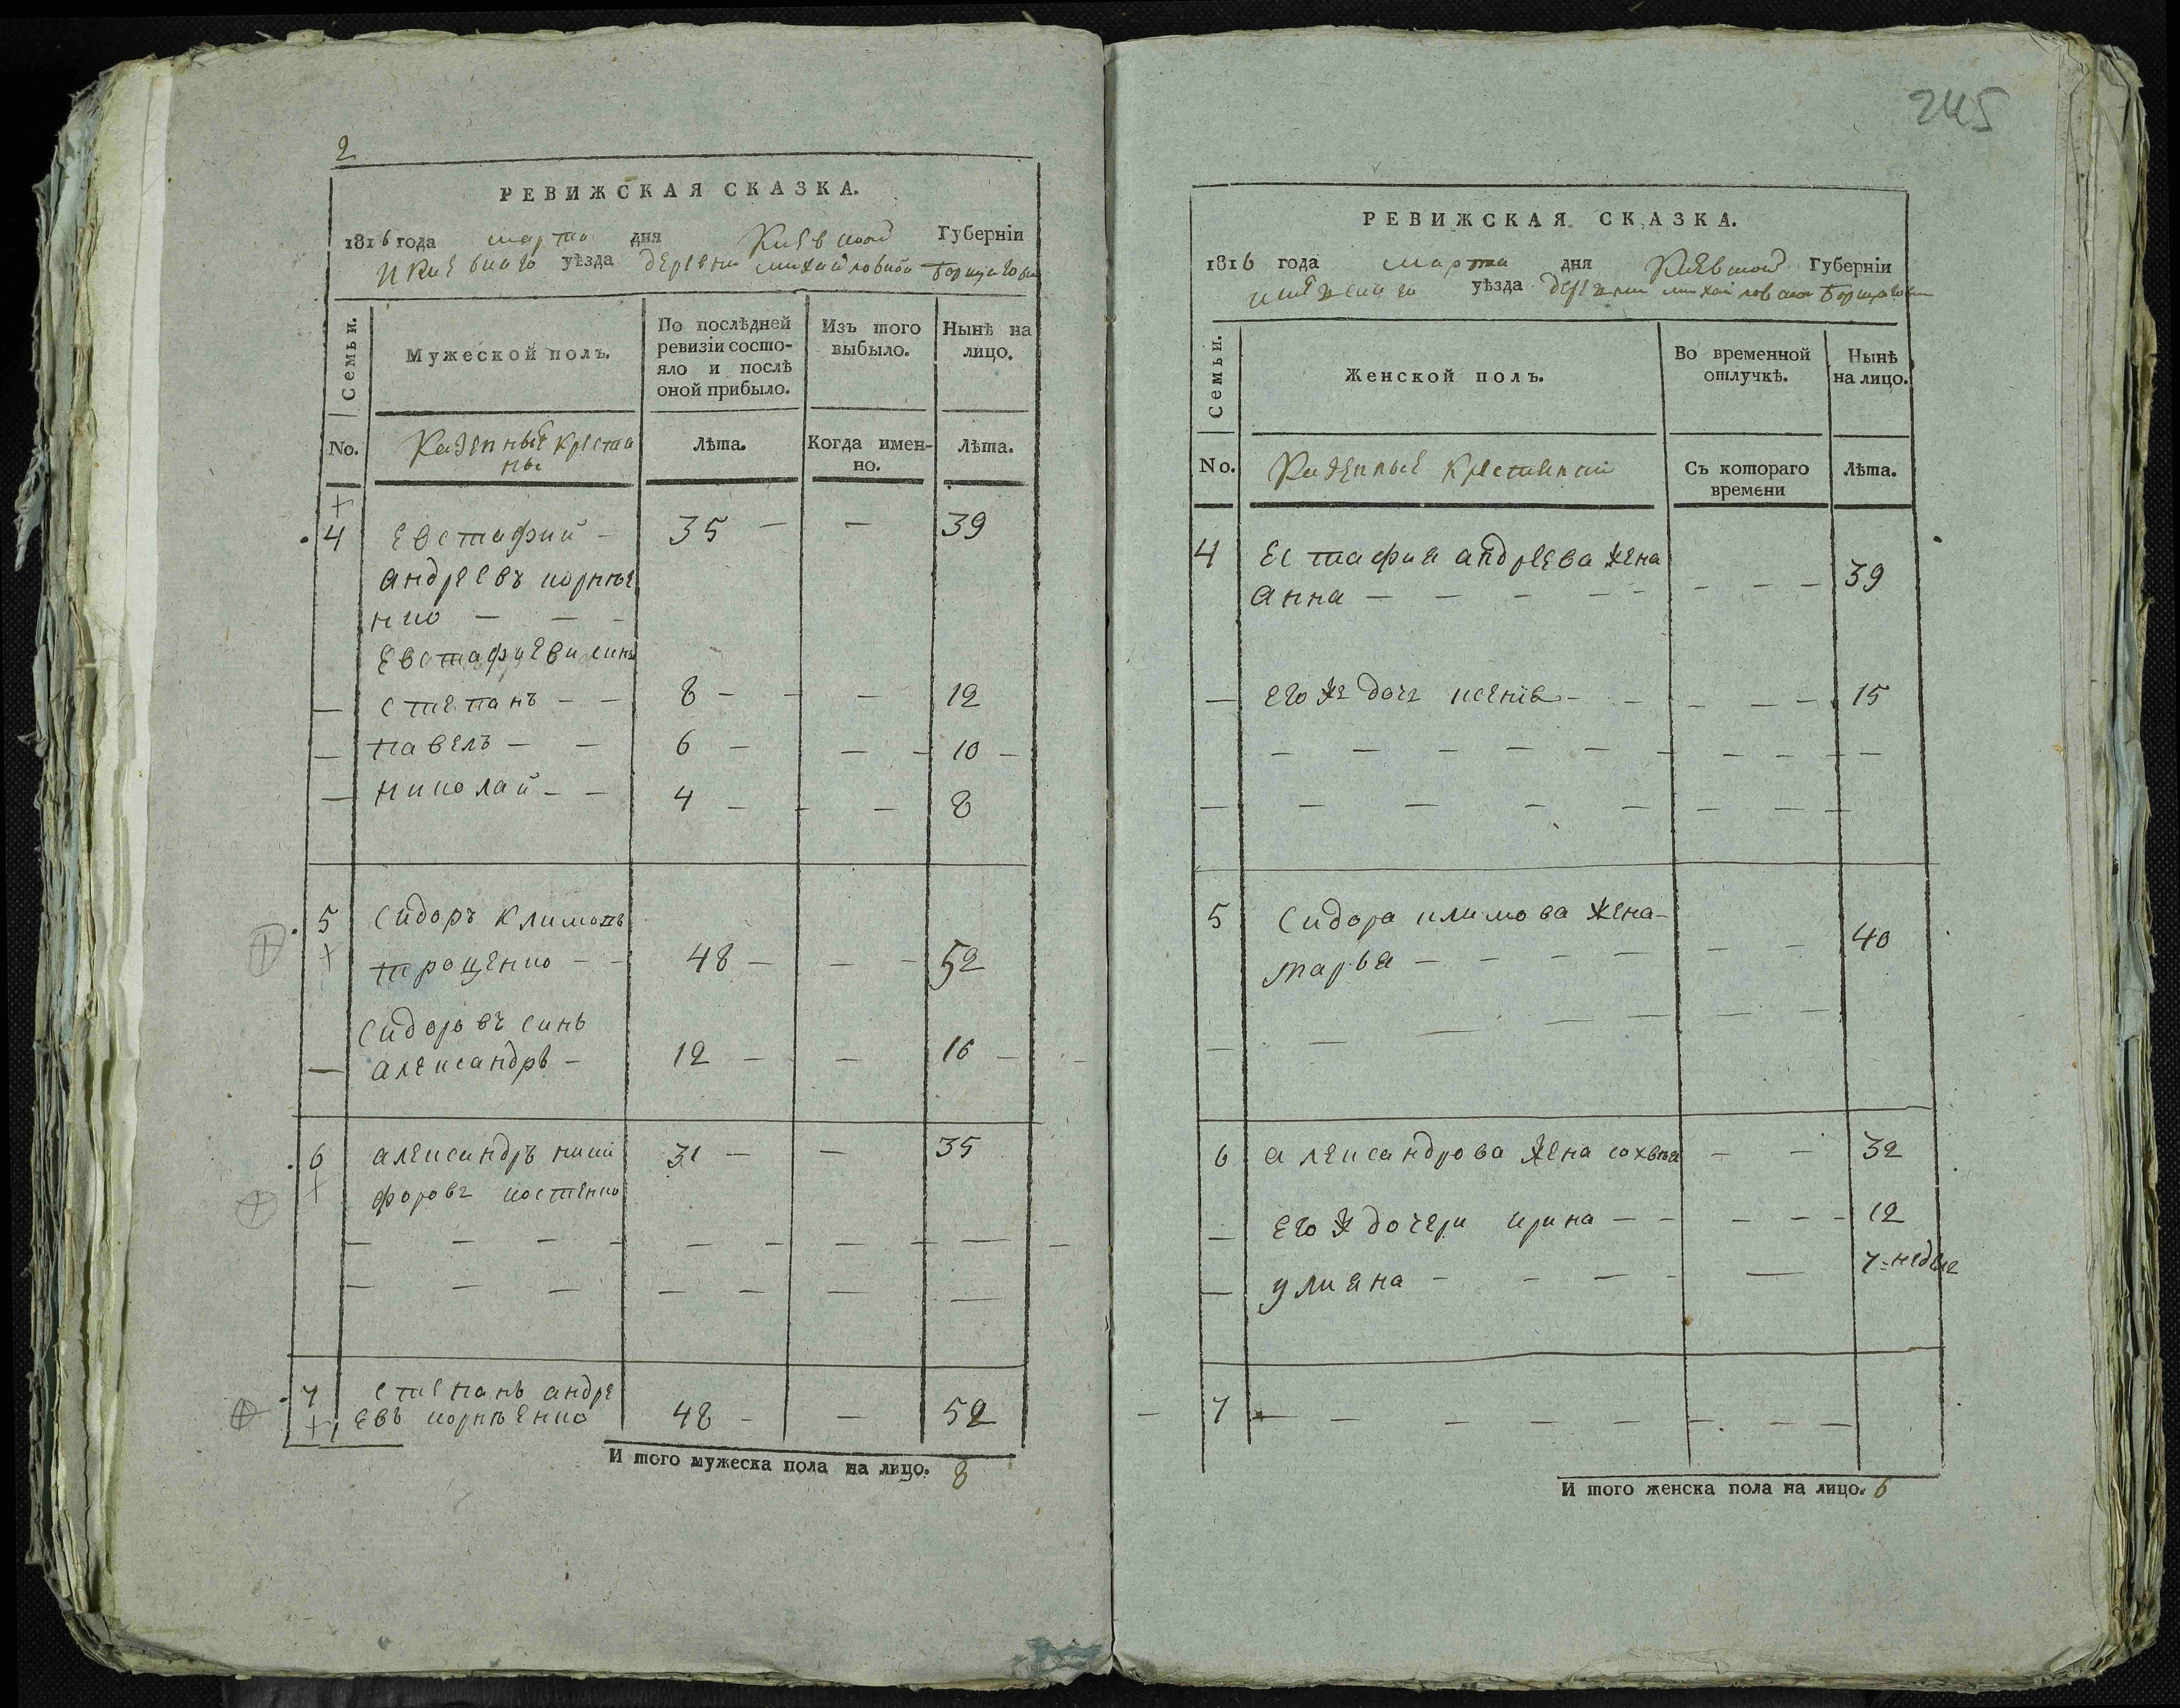 2
РЕВИЖСКАЯ СКАЗКА.
1816 года марта дня Киевской Губерніи
И Киевского уѣзда деревни михайловкой Борщаговки
Семьи.
Мужеской полъ.
По послѣдней ревизіи состо-
яло и послѣ
оной прибыло.
Изъ того
выбыло.
Нынѣ на
лицо.
No.
Казенные крестя
ны
Лѣта.
Когда имен-
но.
Лѣта.
4 Евстафий — 35 — — 39
андреевъ корнѣе
нко — — —
Евстафиеви сины
— степанъ — — 8 — — — 12
— павелъ — — 6 — — — 10 —
— николай — — 4 — — — 8
5 Сидоръ Климовъ
трощенко — — 48 — — — 52
Сидоровъ синъ
— александръ — 12 — — 16 —
6 александръ ники 31 — — 35
форовъ костенко
7 степанъ андре
евъ корнѣенко 48 — — 52
И того мужеска пола на лицо. 8
245
РЕВИЖСКАЯ СКАЗКА.
1816 года марта дня Киевской Губерніи
уѣзда деревни михайловкой Борщаговки
Семьи.
Женской полъ.
Во временной
отлучкѣ.
Нынѣ
на лицо.
No.
Казенные крестянки
Съ котораго
времени
Лѣта.
4 Естафия андреева жена
анна — — — — — — — — 39
— его же дочь ксения — — — — — 15
5 Сидора климова жена —
марья — — — — — — 40
6 александрова жена сохвия — — 32
— его ж дочери ирина — — — — — 12
— улияна — — — — — 7 = недель
7 — — — — — — — — —
И того женска пола на лицо. 6